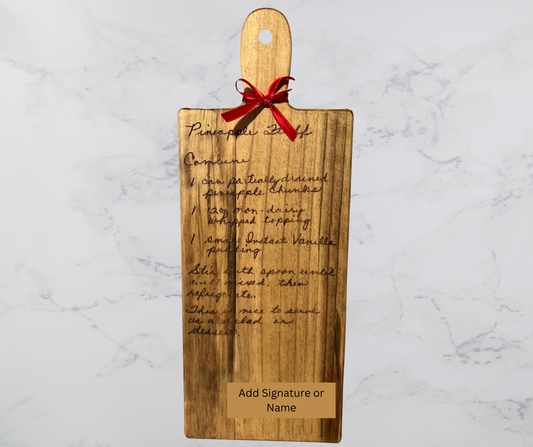 Pineapple Fluff
Combine
1 can partially drained
pineapple chunks
1 12oz non-dairy
whipped topping
1 small Instant Vanilla
pudding
Stir with spoon until
well mixed, then
refrigerate.
This is nice to serve
as a salad or
dessert.
Add Signature or
Name